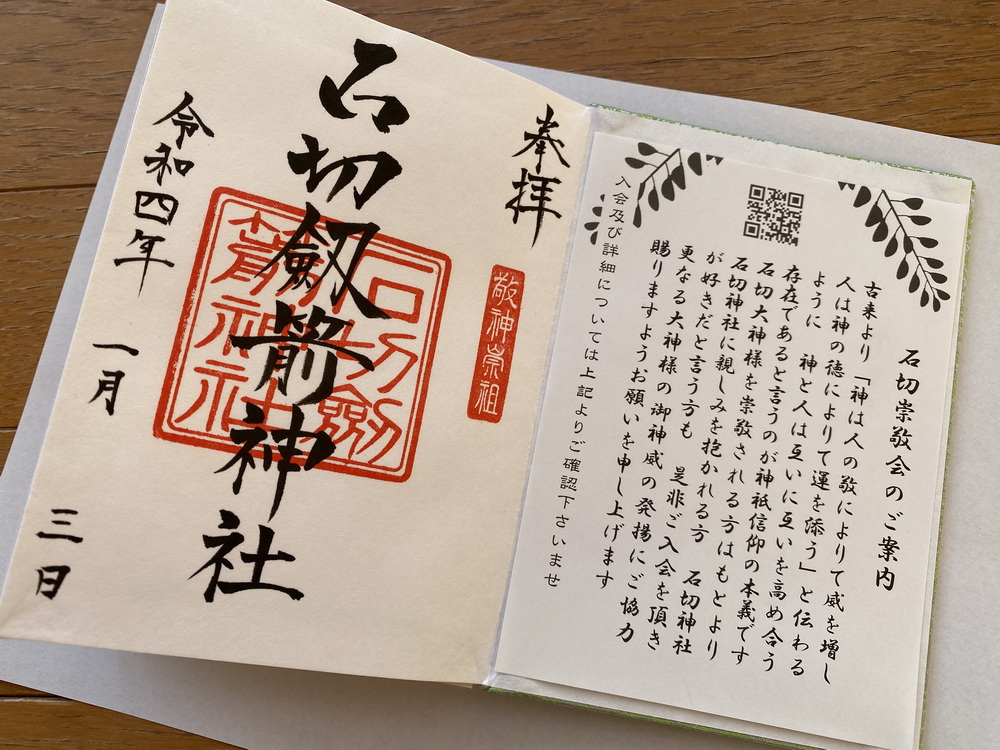 石切崇敬会のご案内
古来より「神は人の敬によりて威を増し
人は神の徳によりて運を添う」と伝わる
ように　神と人は互いに互いを高め合う
存在であると言うのが神祇信仰の本義です
石切大神様を崇敬される方はもとより
石切神社に親しみを抱かれる方　石切神社
が好きだと言う方も　是非ご入会を頂き
更なる大神様の御神威の発揚にご協力
賜りますようお願いを申し上げます
入会及び詳細については上記よりご確認下さいませ
奉拝
敬神崇祖
石切劔箭神社
石切劔
箭神社
令和四年
一月
三日